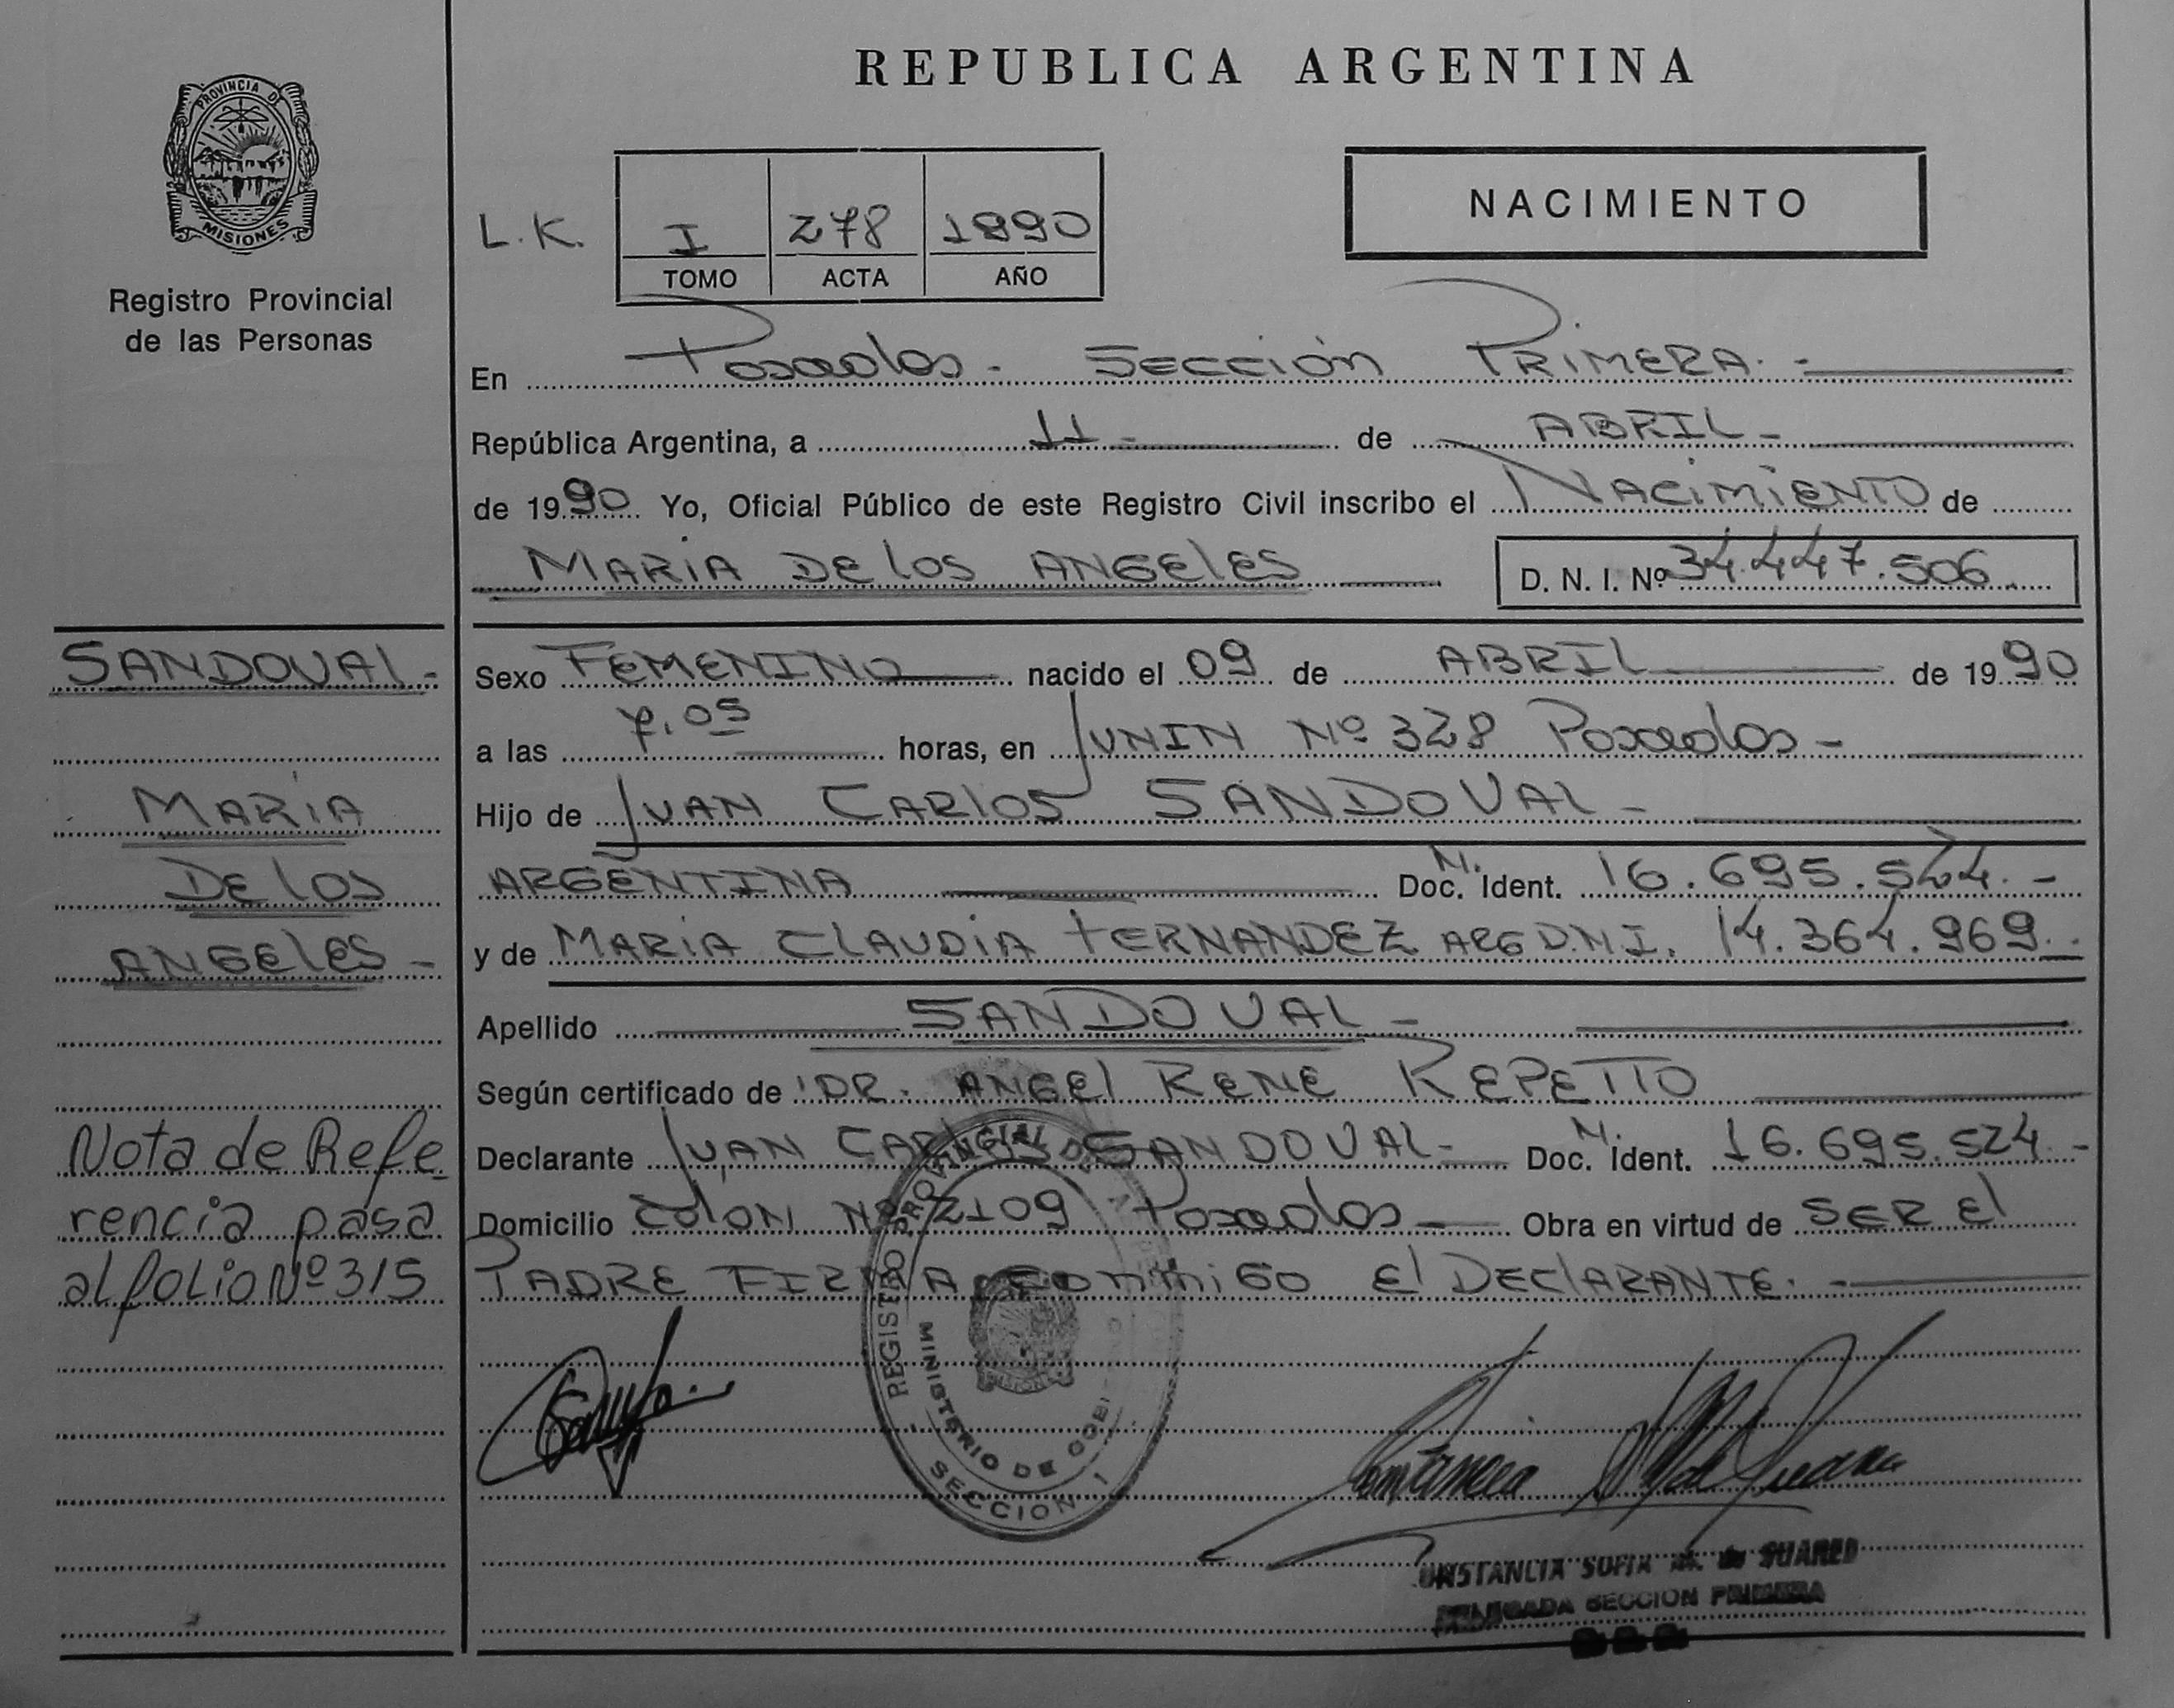 REPUBLICA ARGENTINA
PROVINCIA DE MISIONES
Registro Provincial
de las Personas
NACIMIENTO
L.K. I 278 1990
TOMO ACTA AÑO
En Posadas - Sección PRIMERA. -
República Argentina, a 11 - de ABRIL -
de 1990 Yo, Oficial Público de este Registro Civil inscribo el NACIMIENTO de
MARIA DE los ANGELES D. N. I. Nº 34.447.506
SANDOVAL -
MARIA
DE los
ANGELES -
Sexo FEMENINO nacido el 09 de ABRIL de 1990
a las 7,05 horas, en JUNIN Nº 328 Posadas -
Hijo de JUAN CARLOS SANDOVAL -
ARGENTINA M. Doc. Ident. 16.695.524. -
y de MARIA CLAUDIA FERNANDEZ ARG D.N.I. 14.364.969. -
Apellido SANDOVAL -
Según certificado de DR. ANGEL RENE REPETTO
Declarante JUAN CARLOS SANDOVAL - M. Doc. Ident. 16.695.524 -
Domicilio COLON Nº 2109 Posadas - Obra en virtud de SER El
PADRE FIRMA CONMIGO El DECLARANTE. -
Nota de Refe-
rencia pasa
al folio Nº 315
REGISTRO PROVINCIAL DE
MINISTERIO DE GOBI
SECCION 1
CONSTANCIA SOFIA M. de SUARED
DELEGADA SECCION PRIMERA